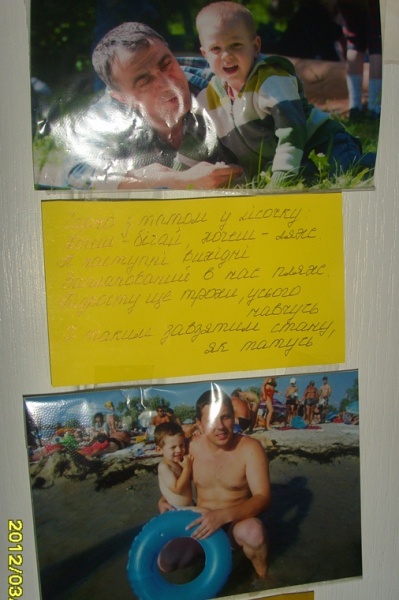 з татом у лісочку:
Хочеш - бігай, хочеш - ляж
А наступні вихідні
Запланований в нас пляж.
Підросту ще трохи, усього
навчусь
І таким завзятим стану,
як татусь
2012/03